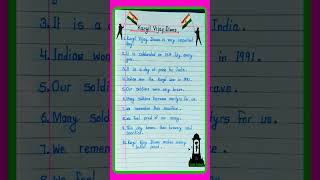 Kargil Vijay Diwas
1. Kargil Vijay Diwas is very important
day.
2. It is celebrated on 26th July every year.
3. It is a day of pride for India.
4. Indian won the Kargil war in 1999.
5. Our soldiers were very brave.
6. Many soldiers became martyrs for us.
7. We remember their sacrifice.
8. We feel proud of our army.
9. This day
sacrifice.
10. Kargil Vijay Diwas makes every
Indian proud.
3. It is a
4. Indian wo
5. Our sol
6. Many sol
7. We reme
India.
1999.
tyrs for us.